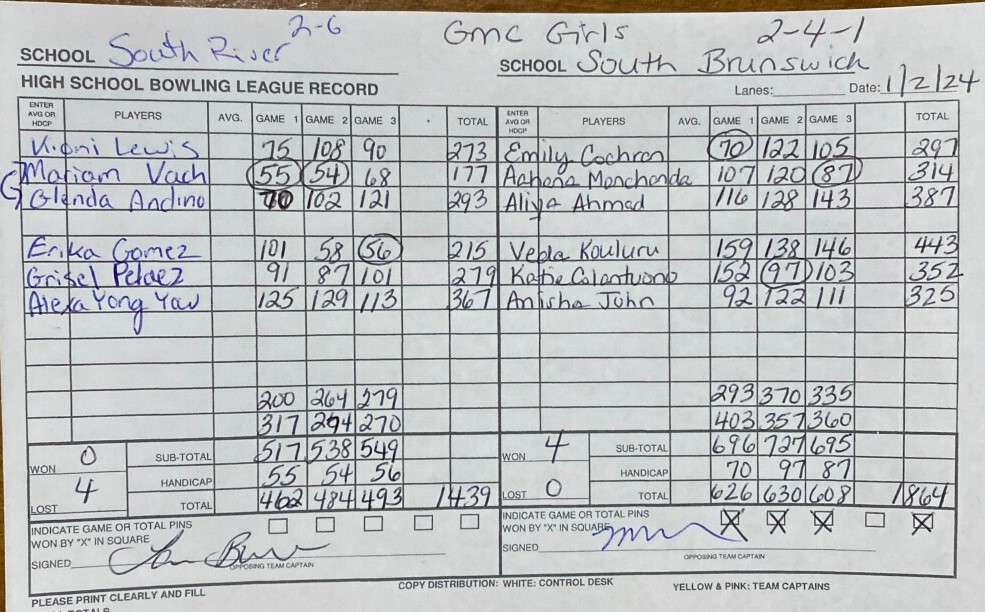 2-6 GMC Girls 2-4-1
SCHOOL South River SCHOOL South Brunswich
HIGH SCHOOL BOWLING LEAGUE RECORD Lanes: Date: 1/2/24
ENTER AVG OR HDCP PLAYERS AVG. GAME 1 GAME 2 GAME 3 TOTAL ENTER AVG OR HDCP PLAYERS AVG. GAME 1 GAME 2 GAME 3 TOTAL
Kioni Lewis 75 108 90 273 Emily Cochran 70 122 105 297
Mariam Vach 55 54 68 177 Aahana Manchanda 107 120 87 314
Glenda Andino 70 102 121 293 Aliya Ahmad 116 128 143 387
Erika Gomez 101 58 56 215 Vedla Kouluru 159 138 146 443
Grisel Pelaez 91 87 101 279 Katie Colantuono 152 97 103 352
Alexa Yong Yau 125 129 113 367 Anisha John 92 122 111 325
200 264 279 293 370 335
317 294 270 403 357 360
WON 0 SUB-TOTAL 517 538 549 WON 4 SUB-TOTAL 696 727 695
HANDICAP 55 54 56 HANDICAP 70 97 87
LOST 4 TOTAL 462 484 493 1439 LOST 0 TOTAL 626 630 608 1864
INDICATE GAME OR TOTAL PINS INDICATE GAME OR TOTAL PINS
WON BY "X" IN SQUARE WON BY "X" IN SQUARE X X X X
SIGNED SIGNED
OPPOSING TEAM CAPTAIN OPPOSING TEAM CAPTAIN
PLEASE PRINT CLEARLY AND FILL COPY DISTRIBUTION: WHITE: CONTROL DESK YELLOW & PINK: TEAM CAPTAINS
TOTALS